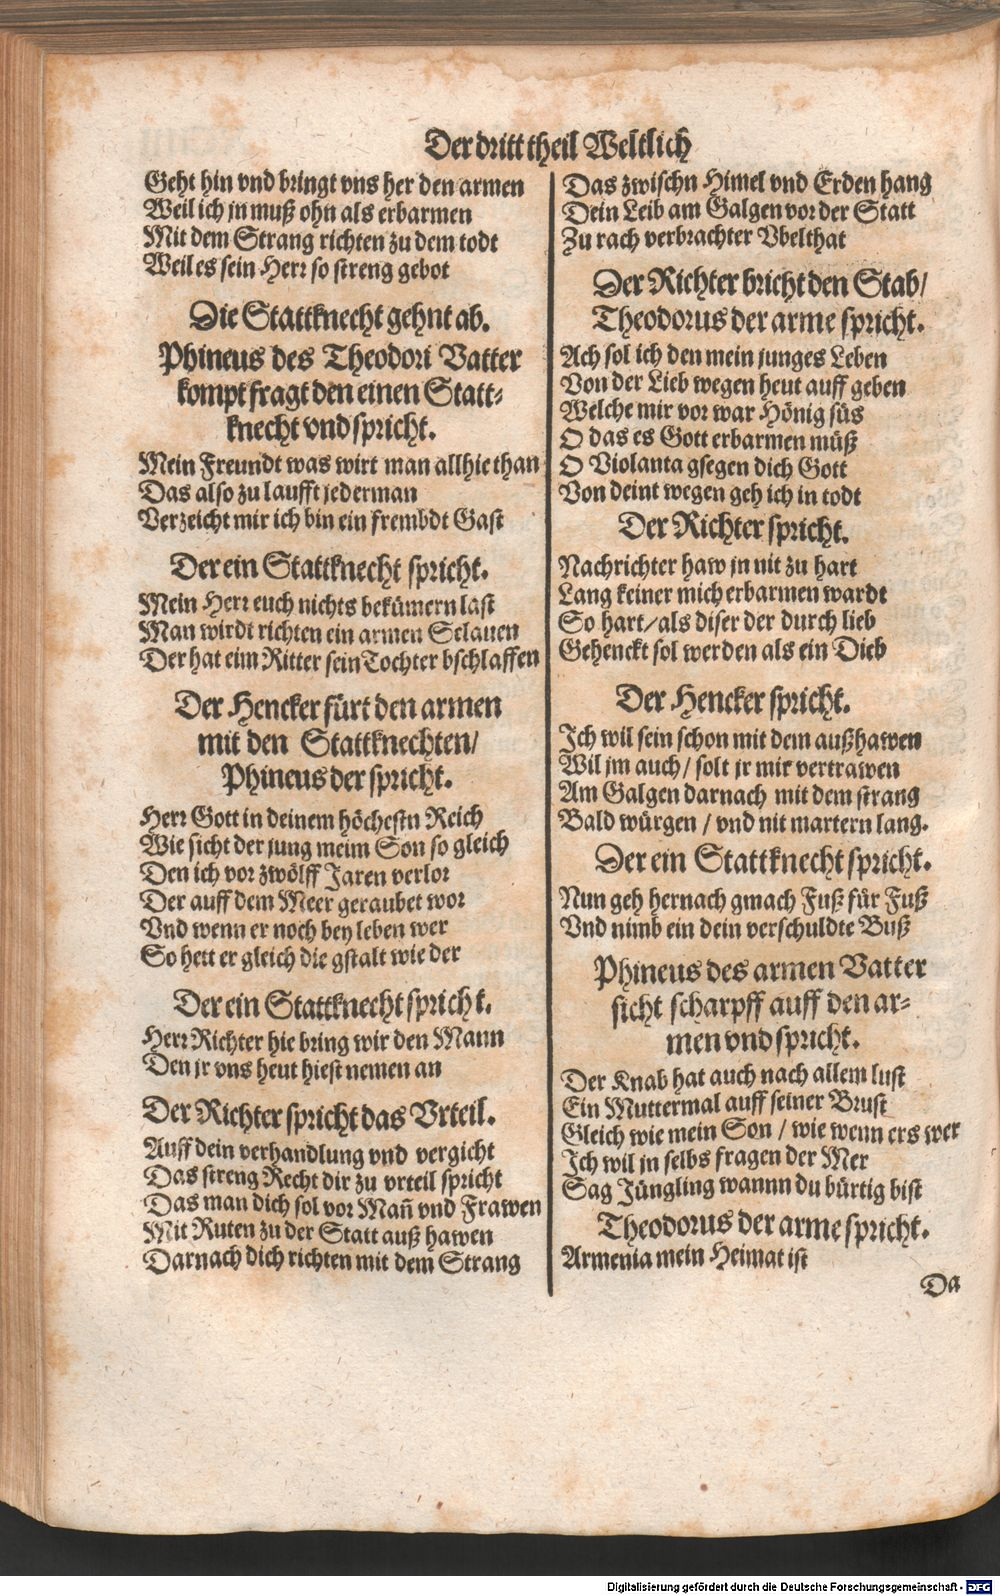 Der dritt theil Weltlich
Geht hin vnd bringt vns her den armen
Weil ich jn muß ohn als erbarmen
Mit dem Strang richten zu dem todt
Weil es sein Herr so streng gebot
Die Stattknecht gehnt ab.
Phineus des Theodori Vatter
kompt fragt den einen Statt-
knecht vnd spricht.
Mein Freundt was wirt man allhie than
Das also zu laufft jederman
Verzeicht mir ich bin ein frembdt Gast
Der ein Stattknecht spricht.
Mein Herr euch nichts bekümern last
Man wirdt richten ein armen Sclauen
Der hat eim Ritter sein Tochter bschlaffen
Der Hencker fürt den armen
mit den Stattknechten/
Phineus der spricht.
Herr Gott in deinem höchestn Reich
Wie sicht der jung meim Son so gleich
Den ich vor zwölff Jaren verlor
Der auff dem Meer geraubet wor
Vnd wenn er noch bey leben wer
So hett er gleich die gstalt wie der
Der ein Stattknecht spricht.
Herr Richter hie bring wir den Mann
Den jr vns heut hiest nemen an
Der Richter spricht das Vrteil.
Auff dein verhandlung vnd vergicht
Das streng Recht dir zu vrteil spricht
Das man dich sol vor Mañ vnd Frawen
Mit Ruten zu der Statt auß hawen
Darnach dich richten mit dem Strang
Das zwischn Himel vnd Erden hang
Dein Leib am Galgen vor der Statt
Zu rach verbrachter Vbelthat
Der Richter bricht den Stab/
Theodorus der arme spricht.
Ach sol ich den mein junges Leben
Von der Lieb wegen heut auff geben
Welche mir vor war Hönig süs
O das es Gott erbarmen müß
O Violanta gsegen dich Gott
Von deint wegen geh ich in todt
Der Richter spricht.
Nachrichter haw jn nit zu hart
Lang keiner mich erbarmen wardt
So hart/als diser der durch lieb
Gehenckt sol werden als ein Dieb
Der Hencker spricht.
Ich wil sein schon mit dem außhawen
Wil jm auch/ solt jr mir vertrawen
Am Galgen darnach mit dem strang
Bald würgen / vnd nit martern lang.
Der ein Stattknecht spricht.
Nun geh hernach gmach Fuß für Fuß
Vnd nimb ein dein verschuldte Buß
Phineus des armen Vatter
sicht scharpff auff den ar-
men vnd spricht.
Der Knab hat auch nach allem lust
Ein Muttermal auff seiner Brust
Gleich wie mein Son / wie wenn ers wer
Ich wil jn selbs fragen der Mer
Sag Jüngling wannn du bürtig bist
Theodorus der arme spricht.
Armenia mein Heimat ist
Da
Digitalisierung gefördert durch die Deutsche Forschungsgemeinschaft - DFG